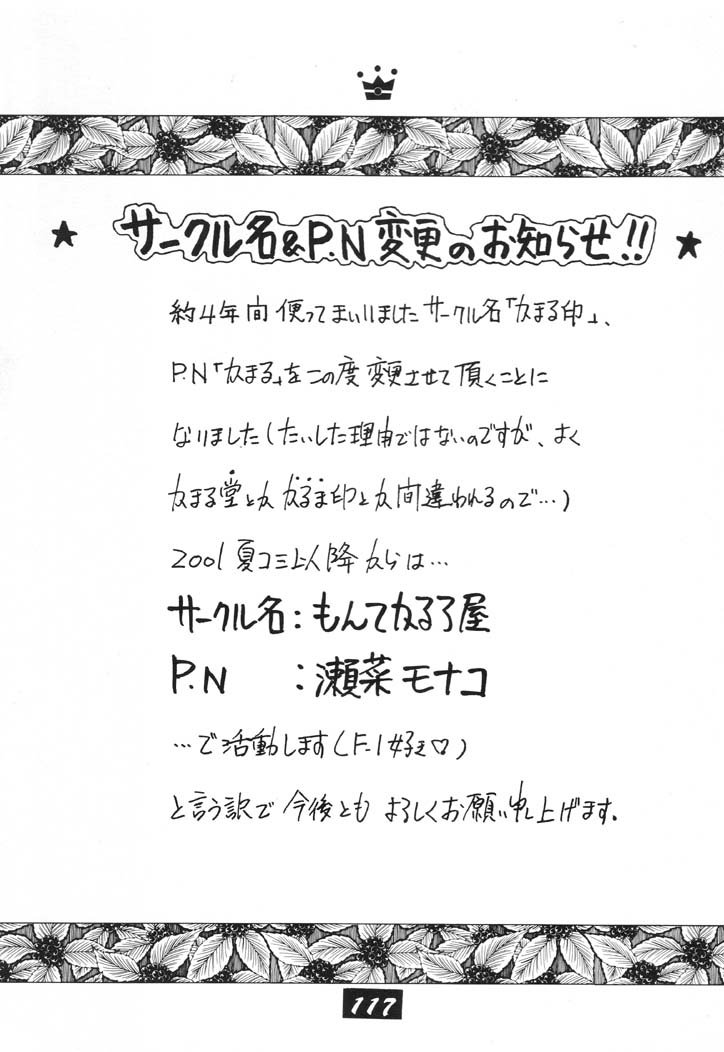 サークル名&P.N変更のお知らせ!!
約4年間使ってまいりましたサークル名「かまる印」、
P.N「かまる」をこの度変更させて頂くことに
なりました(たいした理由ではないのですが、よく
かまる堂とかかるま印とか間違われるので…)
2001夏コミ以降からは…
サークル名:もんてかるろ屋
P.N :瀬菜モナコ
…で活動します(F-1好き♡)
と言う訳で今後ともよろしくお願い申し上げます。
117